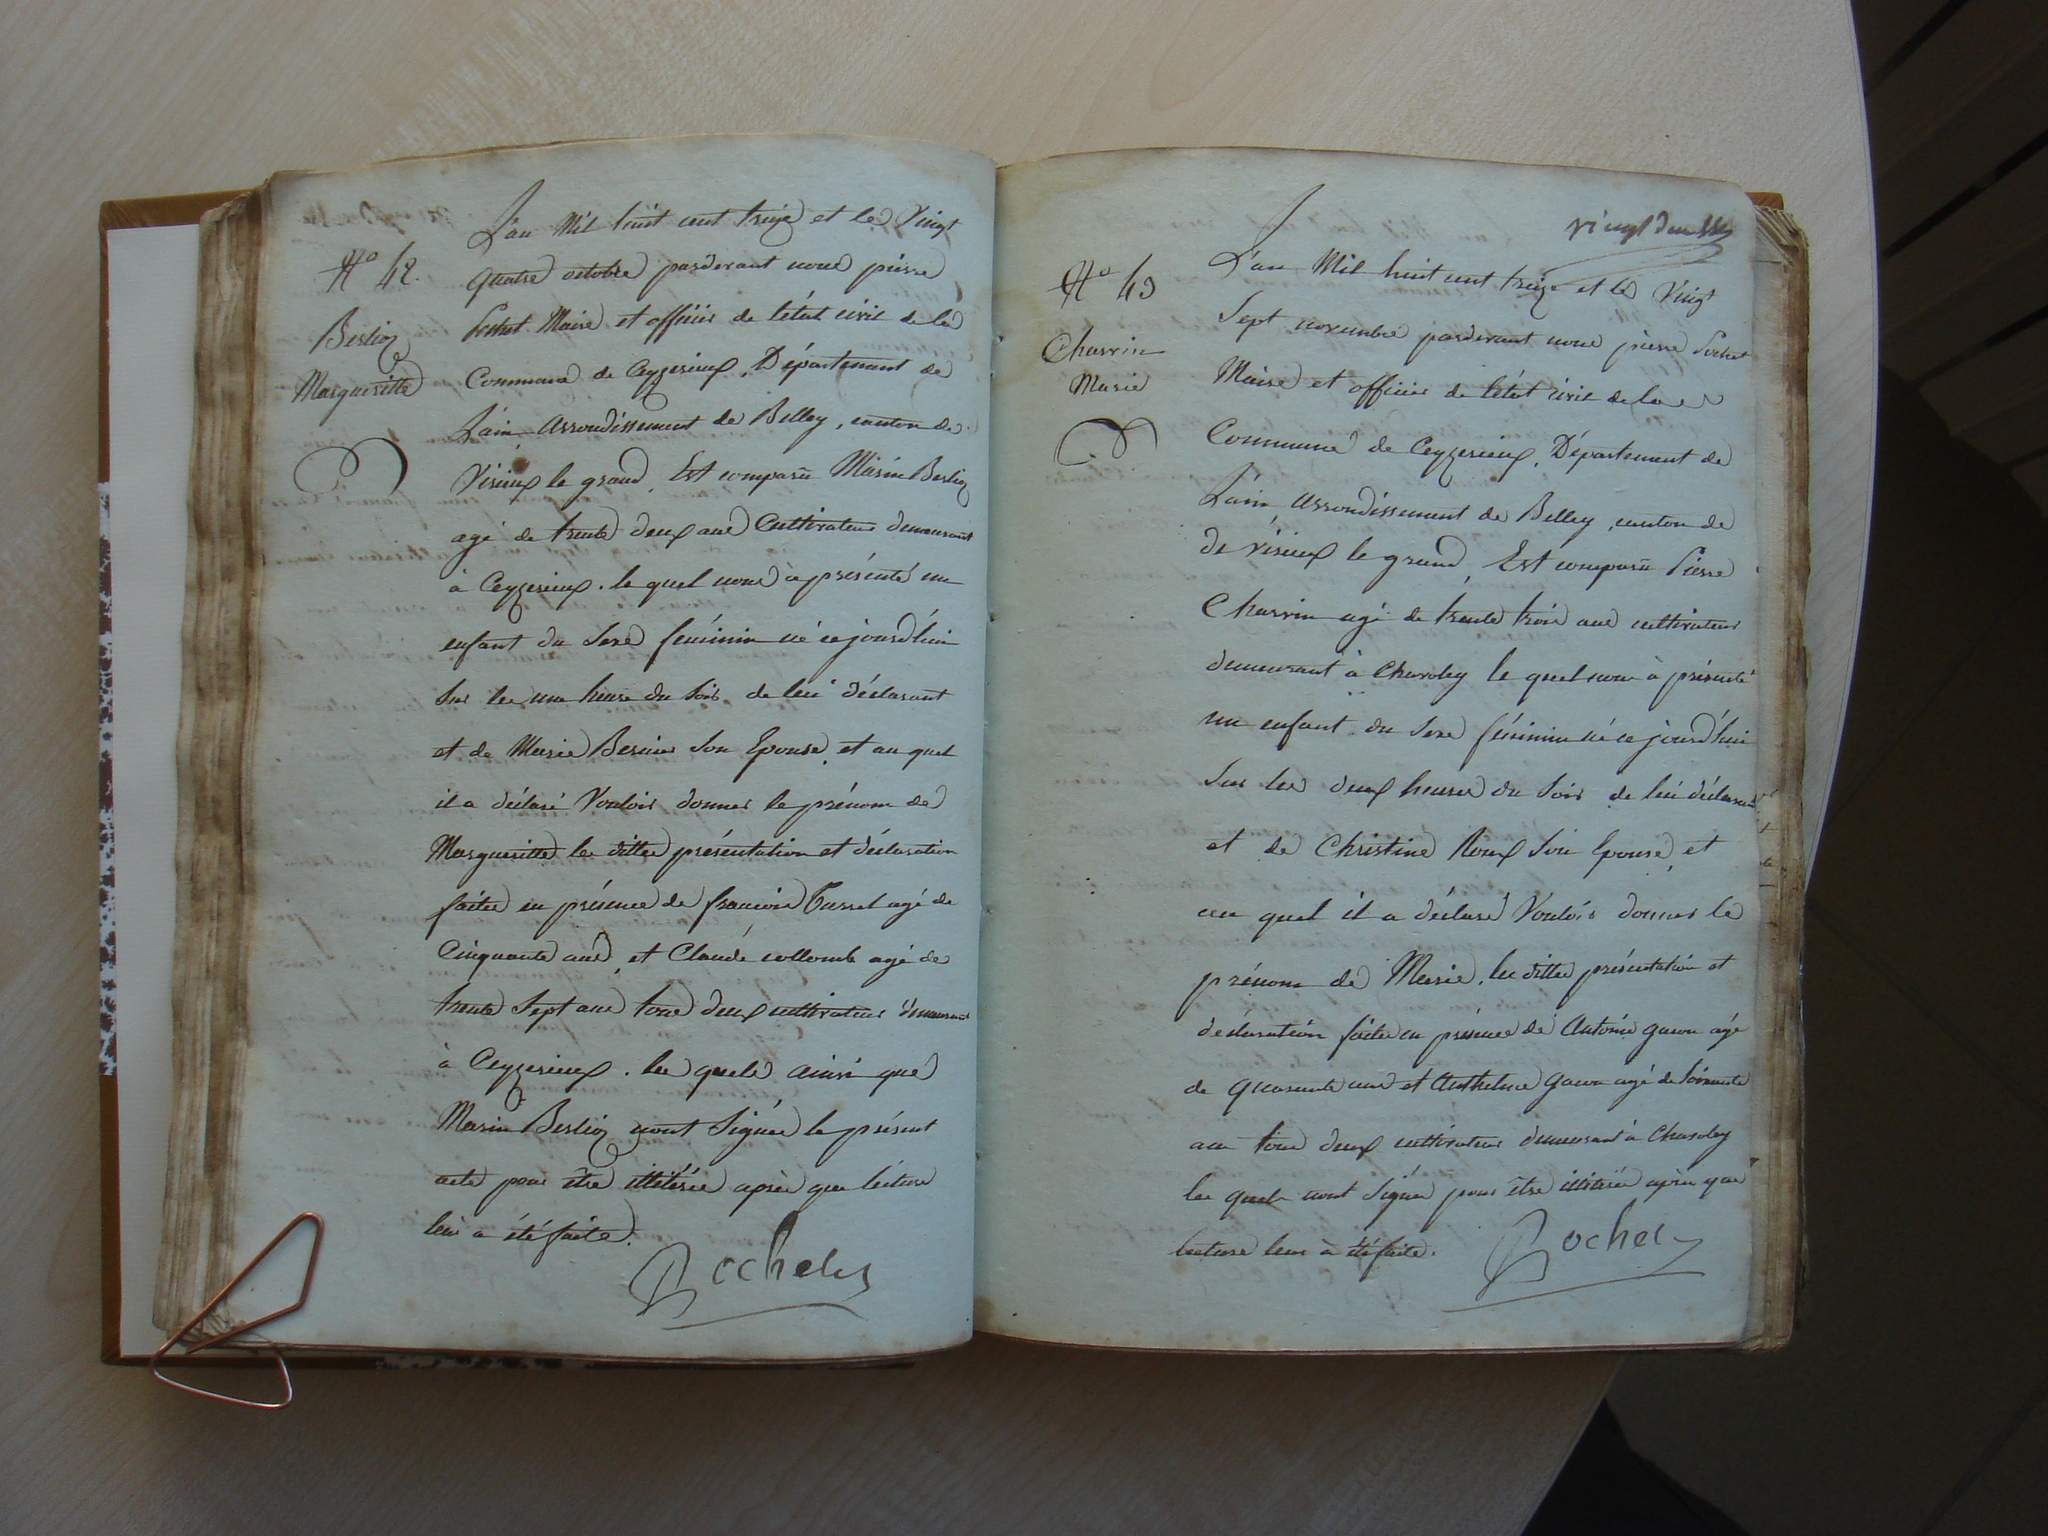 N° 42.
Berlioz
Margueritte
L'an Mil huit cent treize et le Vingt
quatre octobre pardevant nous pierre
Maire et officier de létat civil de la
Commune de Ceyzerieux, Département de
L'ain, Arrondissement de Belley, canton de
Virieux le grand, Est comparu Marin Berlioz
agé de trente deux ans Cultivateur demeurant
à Ceyzerieux. le quel nous a présenté un
enfant du Sexe féminin né ce jourd'huis
Sur les une heure du Soir de lui déclarant
et de Marie Bernier Son Epouse, et au quel
il a déclaré Vouloir donner le prénom de
Margueritte les dittes présentation et déclaration
faites en présence de francois agé de
Cinquante ans, et Claude collomb agé de
trente Sept ans tous deux cultivateurs demeurant
à Ceyzerieux. les quels ainsi que
Marin Berlioz nont Signés le présent
acte pour être illitérés après que lecture
leur a été faite.
vingt deux
N° 43
Charvin
Marie
L'an Mil huit cent treize et le Vingt
Sept novembre pardevant nous pierre
Maire et officier de létat civil de la
Commune de Ceyzerieux, Département de
L'ain, Arrondissement de Belley, canton de
de Virieux le grand, Est comparu Pierre
Charvin agé de trente trois ans cultivateur
demeurant à Chavoley le quel nous à présenté
un enfant du Sexe féminin né ce jourd'huis
Sur les deux heures du Soir de lui déclarant
et de Christine Roux Son Epouse, et
au quel il a déclaré Vouloir donner le
prénom de Marie. les dittes présentation et
déclaration faites en présence de Antoine agé
de quarante ans et Anthelme agé de Soixante
ans tous deux cultivateurs demeurant à Chavoley
les quels nont Signés pour être illitérés après que
lecture leur à été faite.